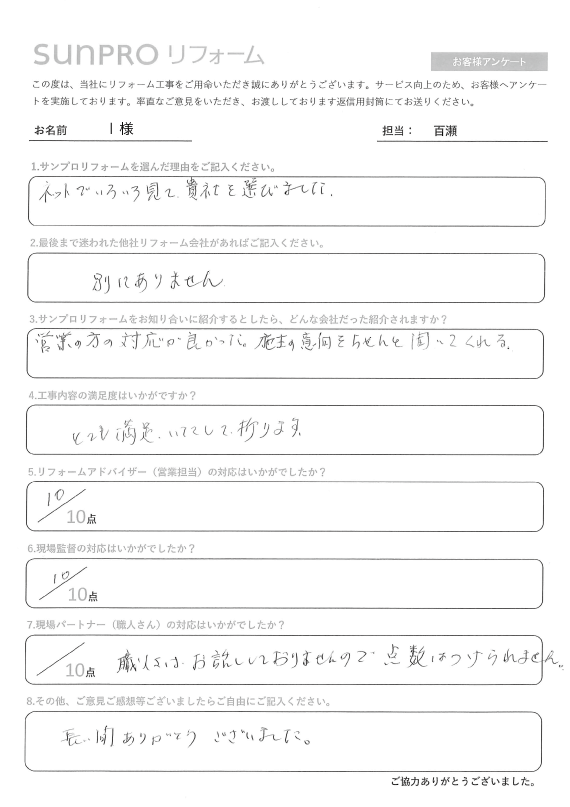 SUNPRO リフォーム
お客様アンケート
この度は、当社にリフォーム工事をご用命いただき誠にありがとうございます。サービス向上のため、お客様へアンケー
トを実施しております。率直なご意見をいただき、お渡ししております返信用封筒にてお送りください。
お名前 I 様 担当： 百瀬
1.サンプロリフォームを選んだ理由をご記入ください。
ネットでいろいろ見て、貴社を選びました。
2.最後まで迷われた他社リフォーム会社があればご記入ください。
別にありません
3.サンプロリフォームをお知り合いに紹介するとしたら、どんな会社だった紹介されますか？
営業の方の対応が良かった。施主の意向をちゃんと聞いてくれる。
4.工事内容の満足度はいかがですか？
とても満足、いたして、折ります
5.リフォームアドバイザー（営業担当）の対応はいかがでしたか？
10
10点
6.現場監督の対応はいかがでしたか？
10
10点
7.現場パートナー（職人さん）の対応はいかがでしたか？
10点 職人さんは、お話ししておりませんので 点数はつけられません。
8.その他、ご意見ご感想等ございましたらご自由にご記入ください。
長い間ありがとう ございました。
ご協力ありがとうございました。